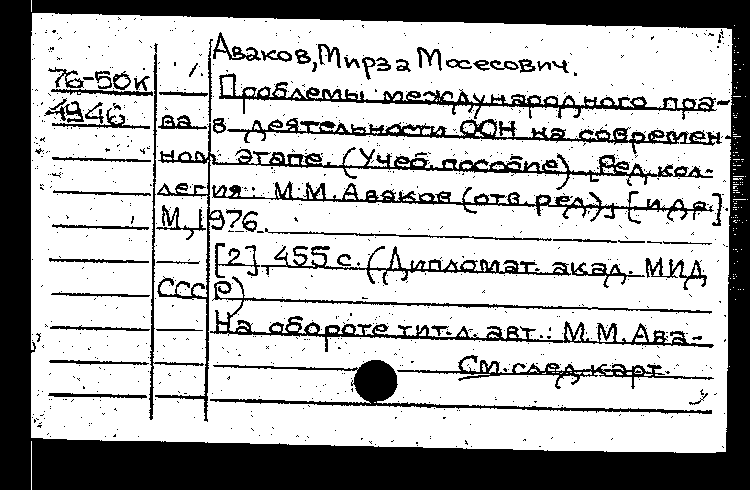 Аваков, Мирза Мосесович.
76-50к
4946
Проблемы международного пра-
ва в деятельности ООН на современ-
ном этапе. (Учеб. пособие). Ред. кол-
легия: М.М. Аваков (отв. ред.), [и др.]
М., 1976.
[2], 455 с. (Дипломат. акад. МИД
СССР)
На обороте тит. л. авт.: М.М. Ава-
См. след. карт.